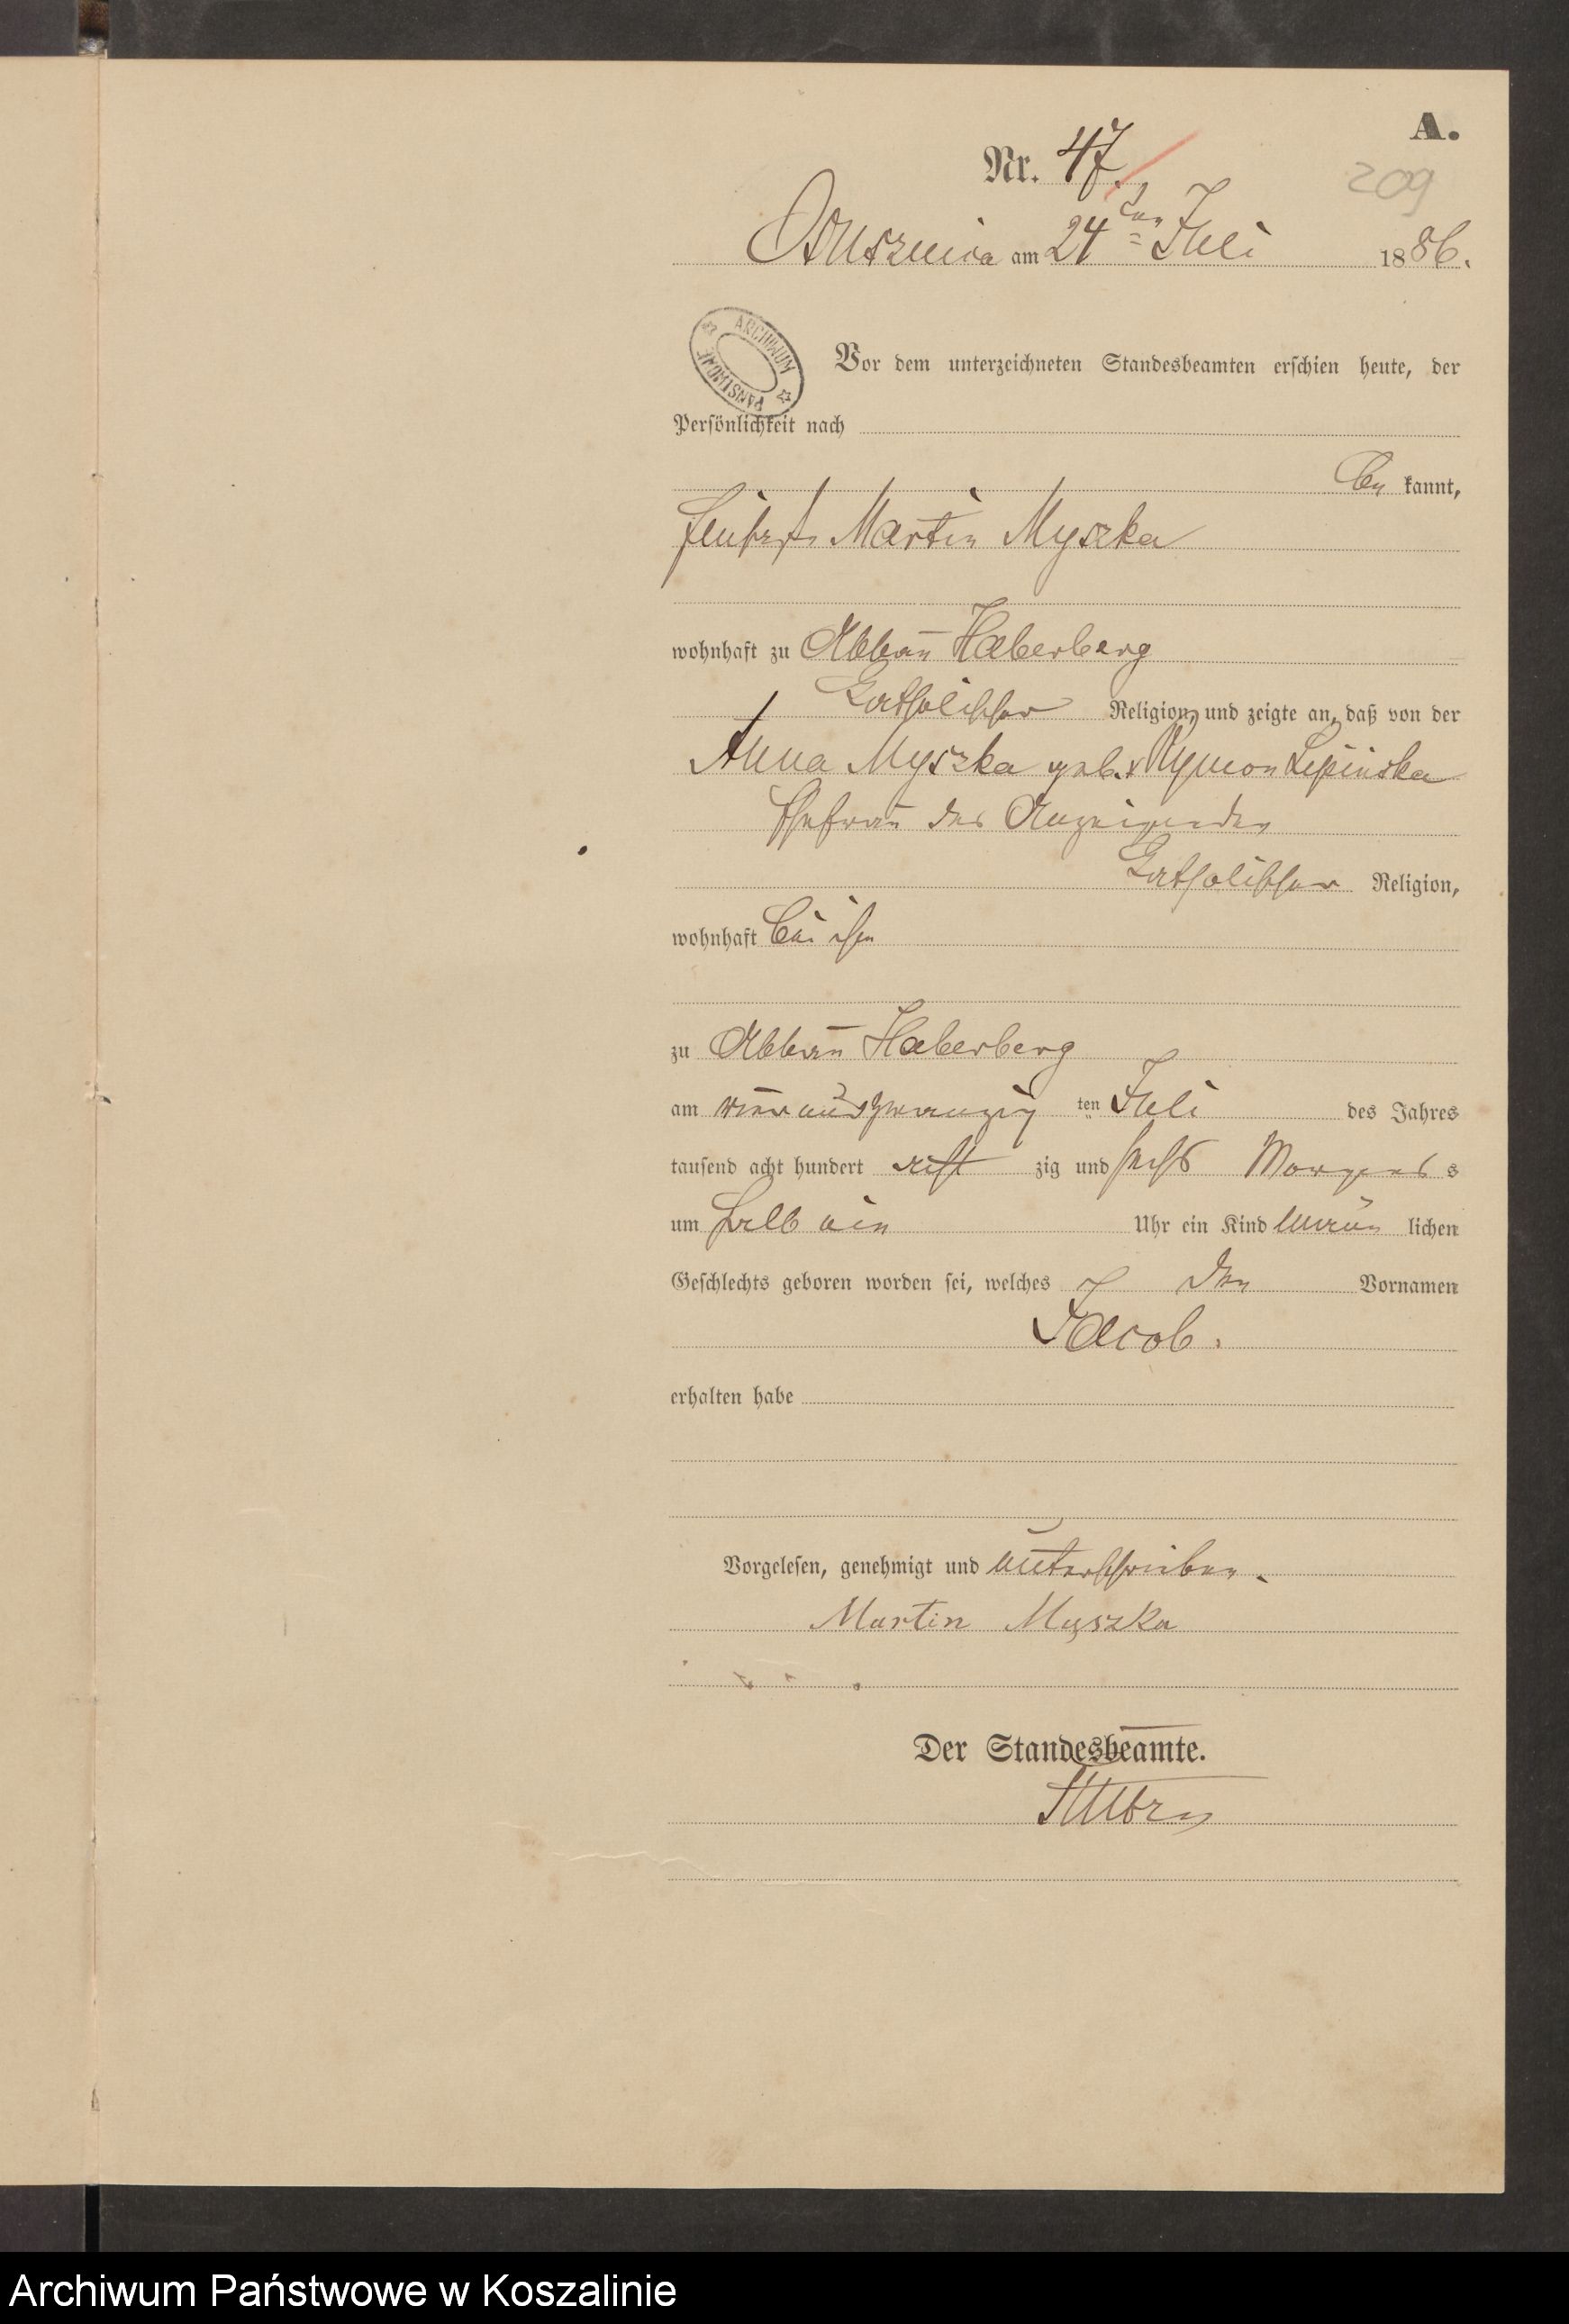 A.
Nr. 47.
209
Ossusznica am 24ten Juli 1886.
ARCHIWUM PAŃSTWOWE
Vor dem unterzeichneten Standesbeamten erschien heute, der
Persönlichkeit nach
be kannt,
Martin Myszka
wohnhaft zu Abbau Haberberg
katholischer Religion, und zeigte an, daß von der
Anna Myszka geb. v Rymon Lipinska
Ehefrau des Anzeigenden
katholischer Religion,
wohnhaft bei ihm
zu Abbau Haberberg
am vier und zwanzig ten Juli des Jahres
tausend acht hundert acht zig und sechs Morgens
um halb ein Uhr ein Kind männ lichen
Geschlechts geboren worden sei, welches den Vornamen
Jacob.
erhalten habe
Vorgelesen, genehmigt und unterschrieben.
Martin Myszka
Der Standesbeamte.
Archiwum Państwowe w Koszalinie